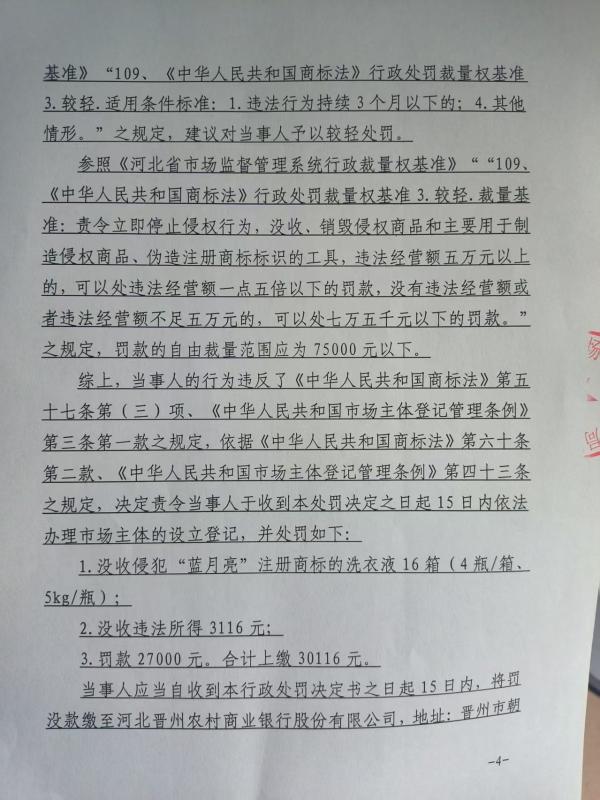 基准》“109、《中华人民共和国商标法》行政处罚裁量权基准
3.较轻.适用条件标准：1.违法行为持续3个月以下的；4.其他
情形。”之规定，建议对当事人予以较轻处罚。
参照《河北省市场监督管理系统行政裁量权基准》““109、
《中华人民共和国商标法》行政处罚裁量权基准3.较轻.裁量基
准：责令立即停止侵权行为，没收、销毁侵权商品和主要用于制
造侵权商品、伪造注册商标标识的工具，违法经营额五万元以上
的，可以处违法经营额一点五倍以下的罚款，没有违法经营额或
者违法经营额不足五万元的，可以处七万五千元以下的罚款。”
之规定，罚款的自由裁量范围应为75000元以下。
综上，当事人的行为违反了《中华人民共和国商标法》第五
十七条第（三）项、《中华人民共和国市场主体登记管理条例》
第三条第一款之规定，依据《中华人民共和国商标法》第六十条
第二款、《中华人民共和国市场主体登记管理条例》第四十三条
之规定，决定责令当事人于收到本处罚决定之日起15日内依法
办理市场主体的设立登记，并处罚如下：
1.没收侵犯“蓝月亮”注册商标的洗衣液16箱（4瓶/箱、
5kg/瓶）；
2.没收违法所得3116元；
3.罚款27000元。合计上缴30116元。
当事人应当自收到本行政处罚决定书之日起15日内，将罚
没款缴至河北晋州农村商业银行股份有限公司，地址：晋州市朝
-4-
局